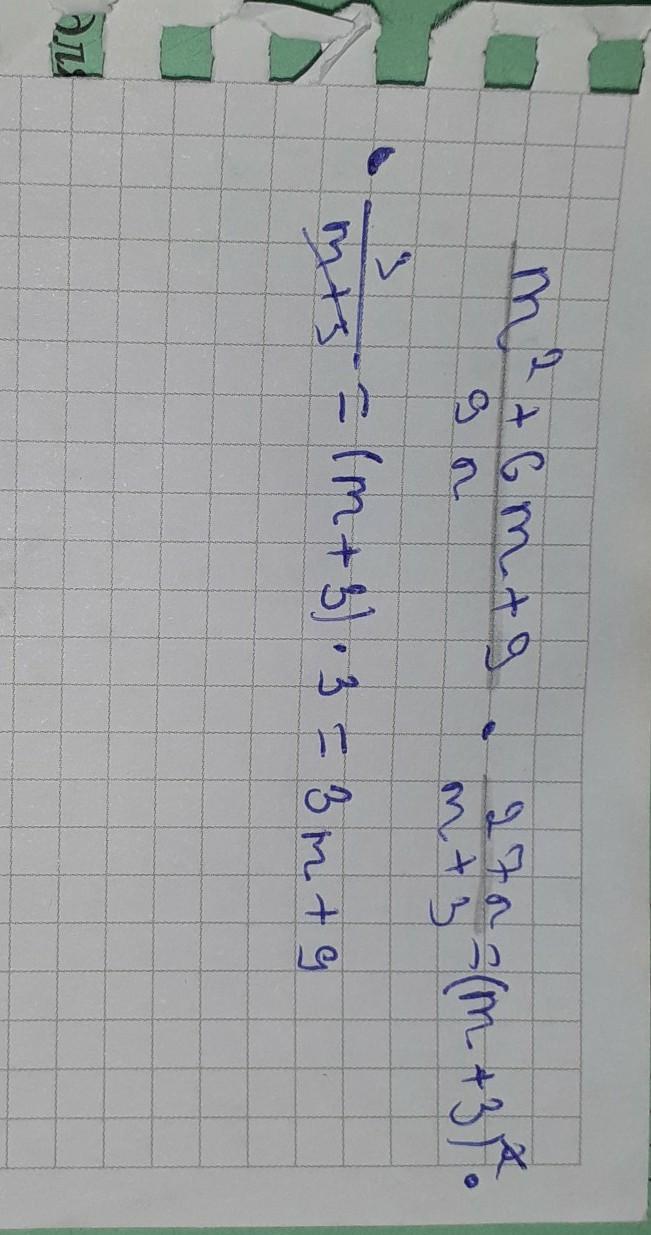 \frac{m^2+6m+9}{9n} \cdot \frac{27n}{m+3} = (m+3)^2 \cdot
\cdot \frac{3}{m+3} = (m+3) \cdot 3 = 3m+9